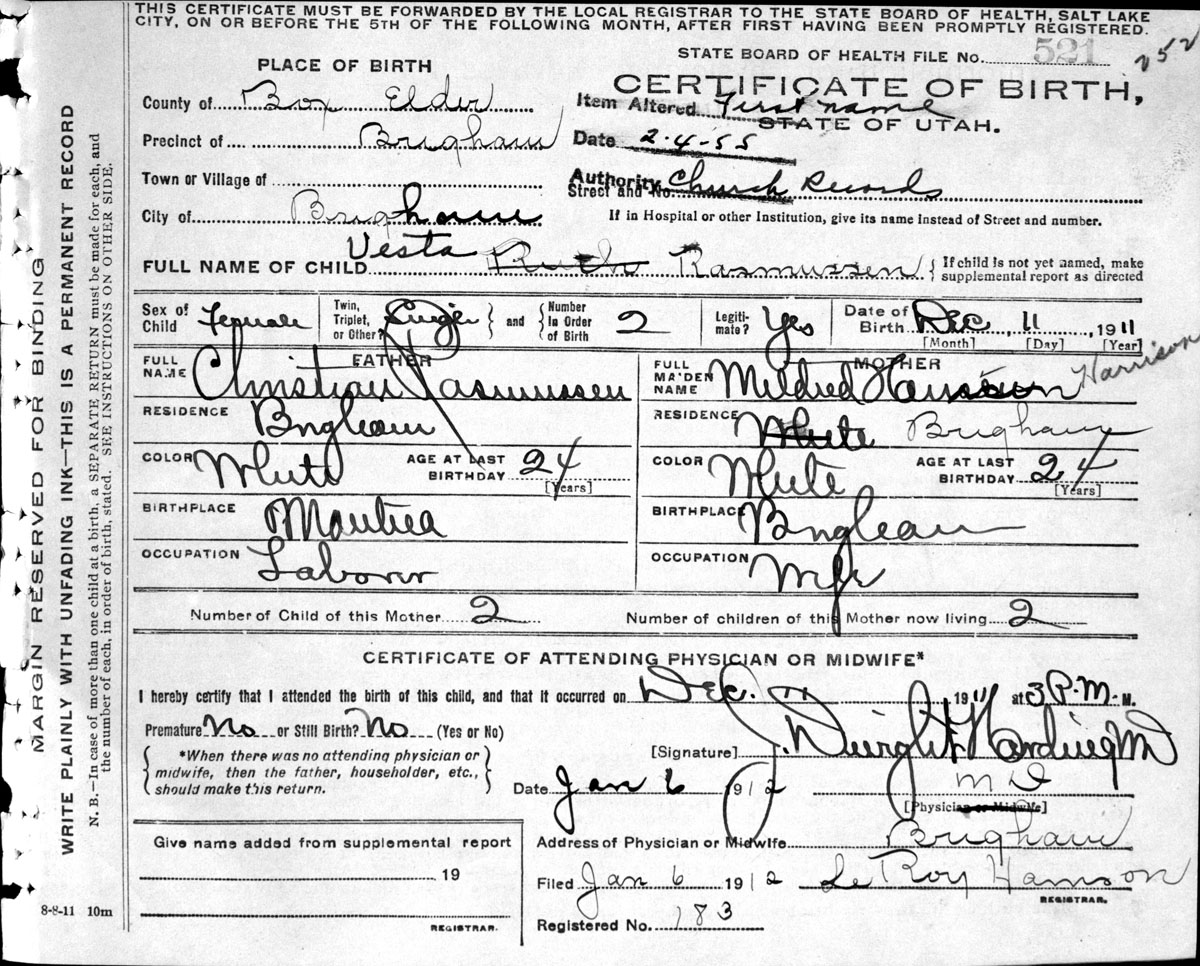 THIS CERTIFICATE MUST BE FORWARDED BY THE LOCAL REGISTRAR TO THE STATE BOARD OF HEALTH, SALT LAKE
CITY, ON OR BEFORE THE 5TH OF THE FOLLOWING MONTH, AFTER FIRST HAVING BEEN PROMPTLY REGISTERED.
STATE BOARD OF HEALTH FILE No. 521 252
PLACE OF BIRTH
CERTIFICATE OF BIRTH,
County of Box Elder
Item Altered First name
STATE OF UTAH.
Precinct of Brigham
Date 2-4-55
Town or Village of
Authority Church Records
Street and No.
City of Brigham
If in Hospital or other Institution, give its name Instead of Street and number.
Vesta
FULL NAME OF CHILD Ruth Rasmussen { If child is not yet named, make
supplemental report as directed
Sex of Child Female
Twin, Triplet, or Other? Single } and { Number In Order of Birth 2
Legitimate? Yes
Date of Birth Dec 11, 1911
[Month] [Day] [Year]
FATHER
FULL NAME Christian Rasmussen
RESIDENCE Brigham
COLOR White AGE AT LAST BIRTHDAY 24
[Years]
BIRTHPLACE
OCCUPATION Laborer
MOTHER
FULL MAIDEN NAME Mildred Harrison
RESIDENCE White Brigham
COLOR White AGE AT LAST BIRTHDAY 24
[Years]
BIRTHPLACE Brigham
OCCUPATION
Number of Child of this Mother 2
Number of children of this Mother now living 2
CERTIFICATE OF ATTENDING PHYSICIAN OR MIDWIFE*
I hereby certify that I attended the birth of this child, and that it occurred on Dec. 11 1911 at 3 P.M. M.
Premature No or Still Birth? No (Yes or No)
[Signature] J. Dwight Harding MD
*When there was no attending physician or
midwife, then the father, householder, etc.,
should make this return.
Date Jan 6 1912 M D
[Physician or Midwife]
Address of Physician or Midwife Brigham
Give name added from supplemental report
19
REGISTRAR.
Filed Jan 6 1912 Le Roy
REGISTRAR.
Registered No. 183
8-8-11 10m
MARGIN RESERVED FOR BINDING
WRITE PLAINLY WITH UNFADING INK—THIS IS A PERMANENT RECORD
N. B.—In case of more than one child at a birth, a SEPARATE RETURN must be made for each, and
the number of each, in order of birth, stated. SEE INSTRUCTIONS ON OTHER SIDE.